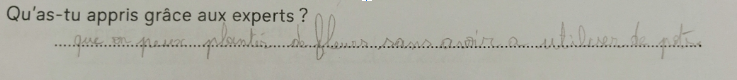 Qu'as-tu appris grâce aux experts ?
que on peux plantir de fleurs sans avoir a utiliser de pot.